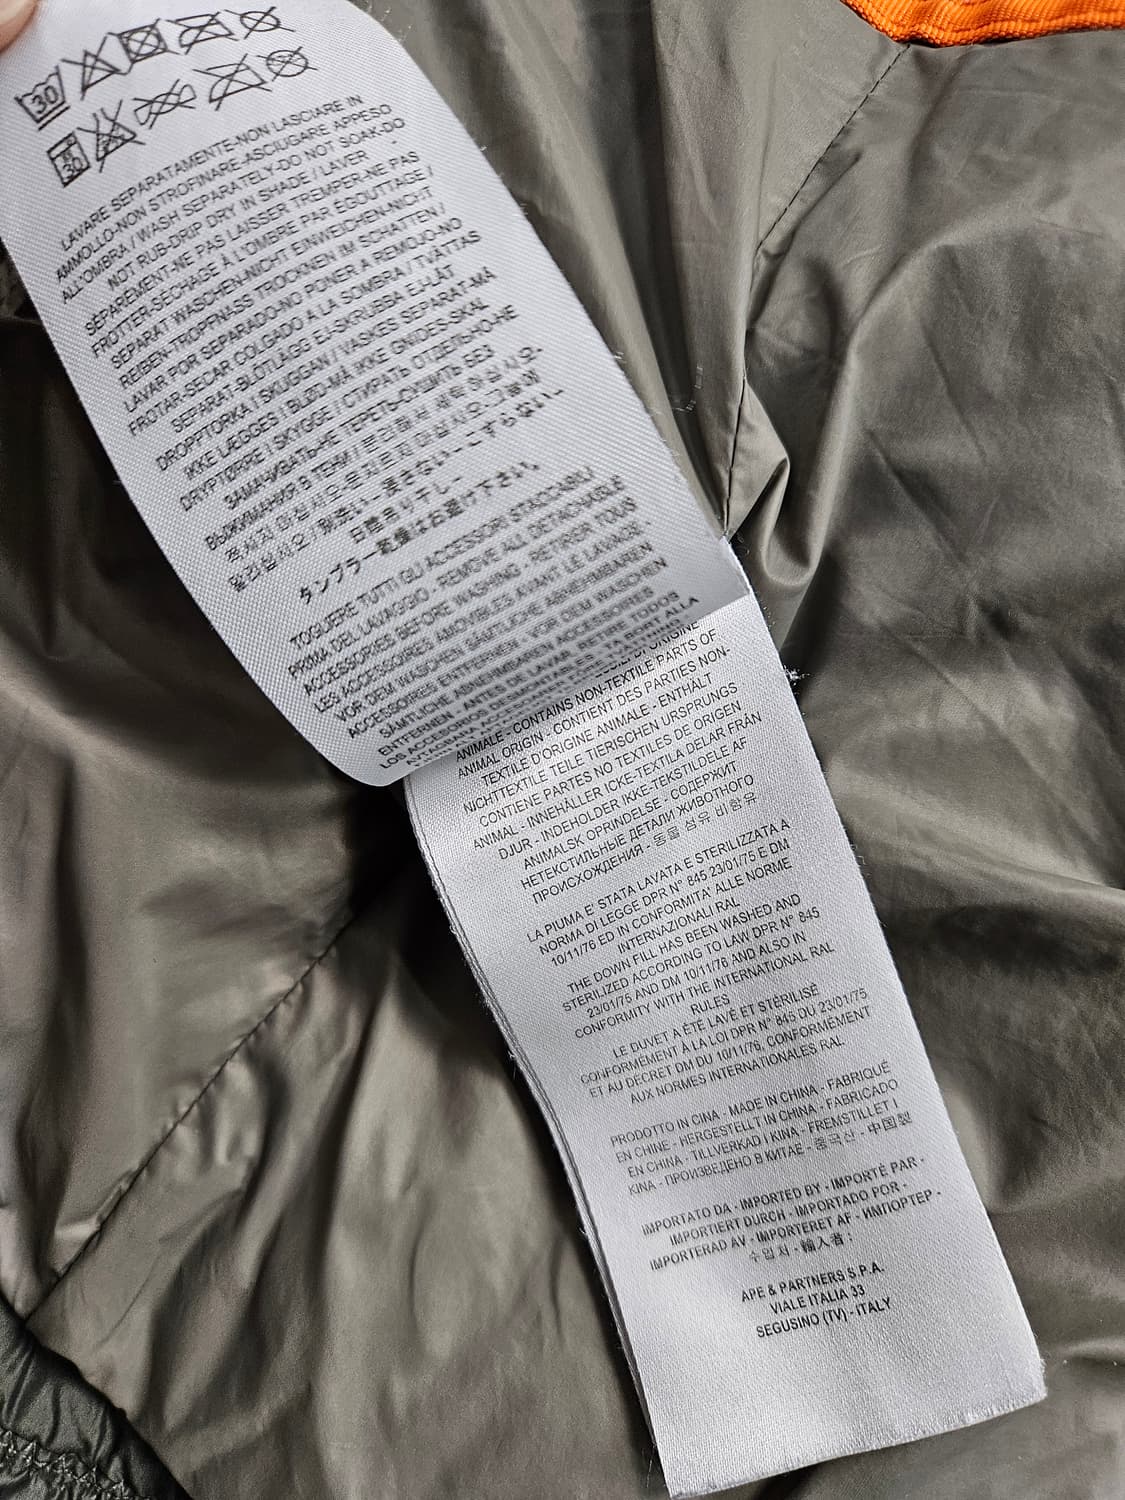 30
30
LAVARE SEPARATAMENTE-NON LASCIARE IN
AMMOLLO-NON STROFINARE-ASCIUGARE APPESO
ALL'OMBRA / WASH SEPARATELY-DO NOT SOAK-DO
NOT RUB-DRIP DRY IN SHADE / LAVER
SÉPARÉMENT-NE PAS LAISSER TREMPER-NE PAS
FROTTER-SÉCHAGE À L'OMBRE PAR ÉGOUTTAGE /
SEPARAT WASCHEN-NICHT EINWEICHEN-NICHT
REIBEN-TROPFNASS TROCKNEN IM SCHATTEN /
LAVAR POR SEPARADO-NO PONER A REMOJO-NO
FROTAR-SECAR COLGADO A LA SOMBRA / TVÄTTAS
SEPARAT-BLÖTLÄGG EJ-SKRUBBA EJ-LÅT
DROPPTORKA I SKUGGAN / VASKES SEPARAT-MÅ
IKKE LÆGGES I BLØD-MÅ IKKE GNIDES-SKAL
DRYPTØRRE I SKYGGE / СТИРАТЬ ОТДЕЛЬНО-НЕ
ЗАМАЧИВАТЬ-НЕ ТЕРЕТЬ-СУШИТЬ БЕЗ
ВЫЖИМАНИЯ В ТЕНИ /
タンブラー乾燥はお避け下さい。
TOGLIERE TUTTI GLI ACCESSORI STACCABILI
PRIMA DEL LAVAGGIO - REMOVE ALL DETACHABLE
ACCESSORIES BEFORE WASHING - RETIRER TOUS
LES ACCESSOIRES AMOVIBLES AVANT LE LAVAGE -
VOR DEM WASCHEN SÄMTLICHE ABNEHMBAREN
ACCESSOIRES ENTFERNEN. VOR DEM WASCHEN
SÄMTLICHE ABNEHMBAREN ACCESSOIRES
ENTFERNEN. ANTES DE LAVAR, RETIRE TODOS
LOS ACCESORIOS DESMONTABLES. TA BORT ALLA
ANIMALE - CONTAINS NON-TEXTILE PARTS OF
ANIMAL ORIGIN - CONTIENT DES PARTIES NON-
TEXTILE D'ORIGINE ANIMALE - ENTHÄLT
NICHTTEXTILE TEILE TIERISCHEN URSPRUNGS
CONTIENE PARTES NO TEXTILES DE ORIGEN
ANIMAL - INNEHÅLLER ICKE-TEXTILA DELAR FRÅN
DJUR - INDEHOLDER IKKE-TEKSTILDELE AF
ANIMALSK OPRINDELSE - СОДЕРЖИТ
НЕТЕКСТИЛЬНЫЕ ДЕТАЛИ ЖИВОТНОГО
ПРОИСХОЖДЕНИЯ - 동물 섬유 비함유
LA PIUMA E' STATA LAVATA E STERILIZZATA A
NORMA DI LEGGE DPR N° 845 23/01/75 E DM
10/11/76 ED IN CONFORMITA' ALLE NORME
INTERNAZIONALI RAL
THE DOWN FILL HAS BEEN WASHED AND
STERILIZED ACCORDING TO LAW DPR N° 845
23/01/75 AND DM 10/11/76 AND ALSO IN
CONFORMITY WITH THE INTERNATIONAL RAL
RULES
LE DUVET A ÉTÉ LAVÉ ET STÉRILISÉ
CONFORMÉMENT À LA LOI DPR N° 845 DU 23/01/75
ET AU DÉCRET DM DU 10/11/76, CONFORMÉMENT
AUX NORMES INTERNATIONALES RAL
PRODOTTO IN CINA - MADE IN CHINA - FABRIQUÉ
EN CHINE - HERGESTELLT IN CHINA - FABRICADO
EN CHINA - TILLVERKAD I KINA - FREMSTILLET I
KINA - ПРОИЗВЕДЕНО В КИТАЕ - 중국산 - 中国製
IMPORTATO DA - IMPORTED BY - IMPORTÉ PAR -
IMPORTIERT DURCH - IMPORTADO POR -
IMPORTERAD AV - IMPORTERET AF - ИМПОРТЕР -
수입처 - 輸入者 :
APE & PARTNERS S.P.A.
VIALE ITALIA 33
SEGUSINO (TV) - ITALY